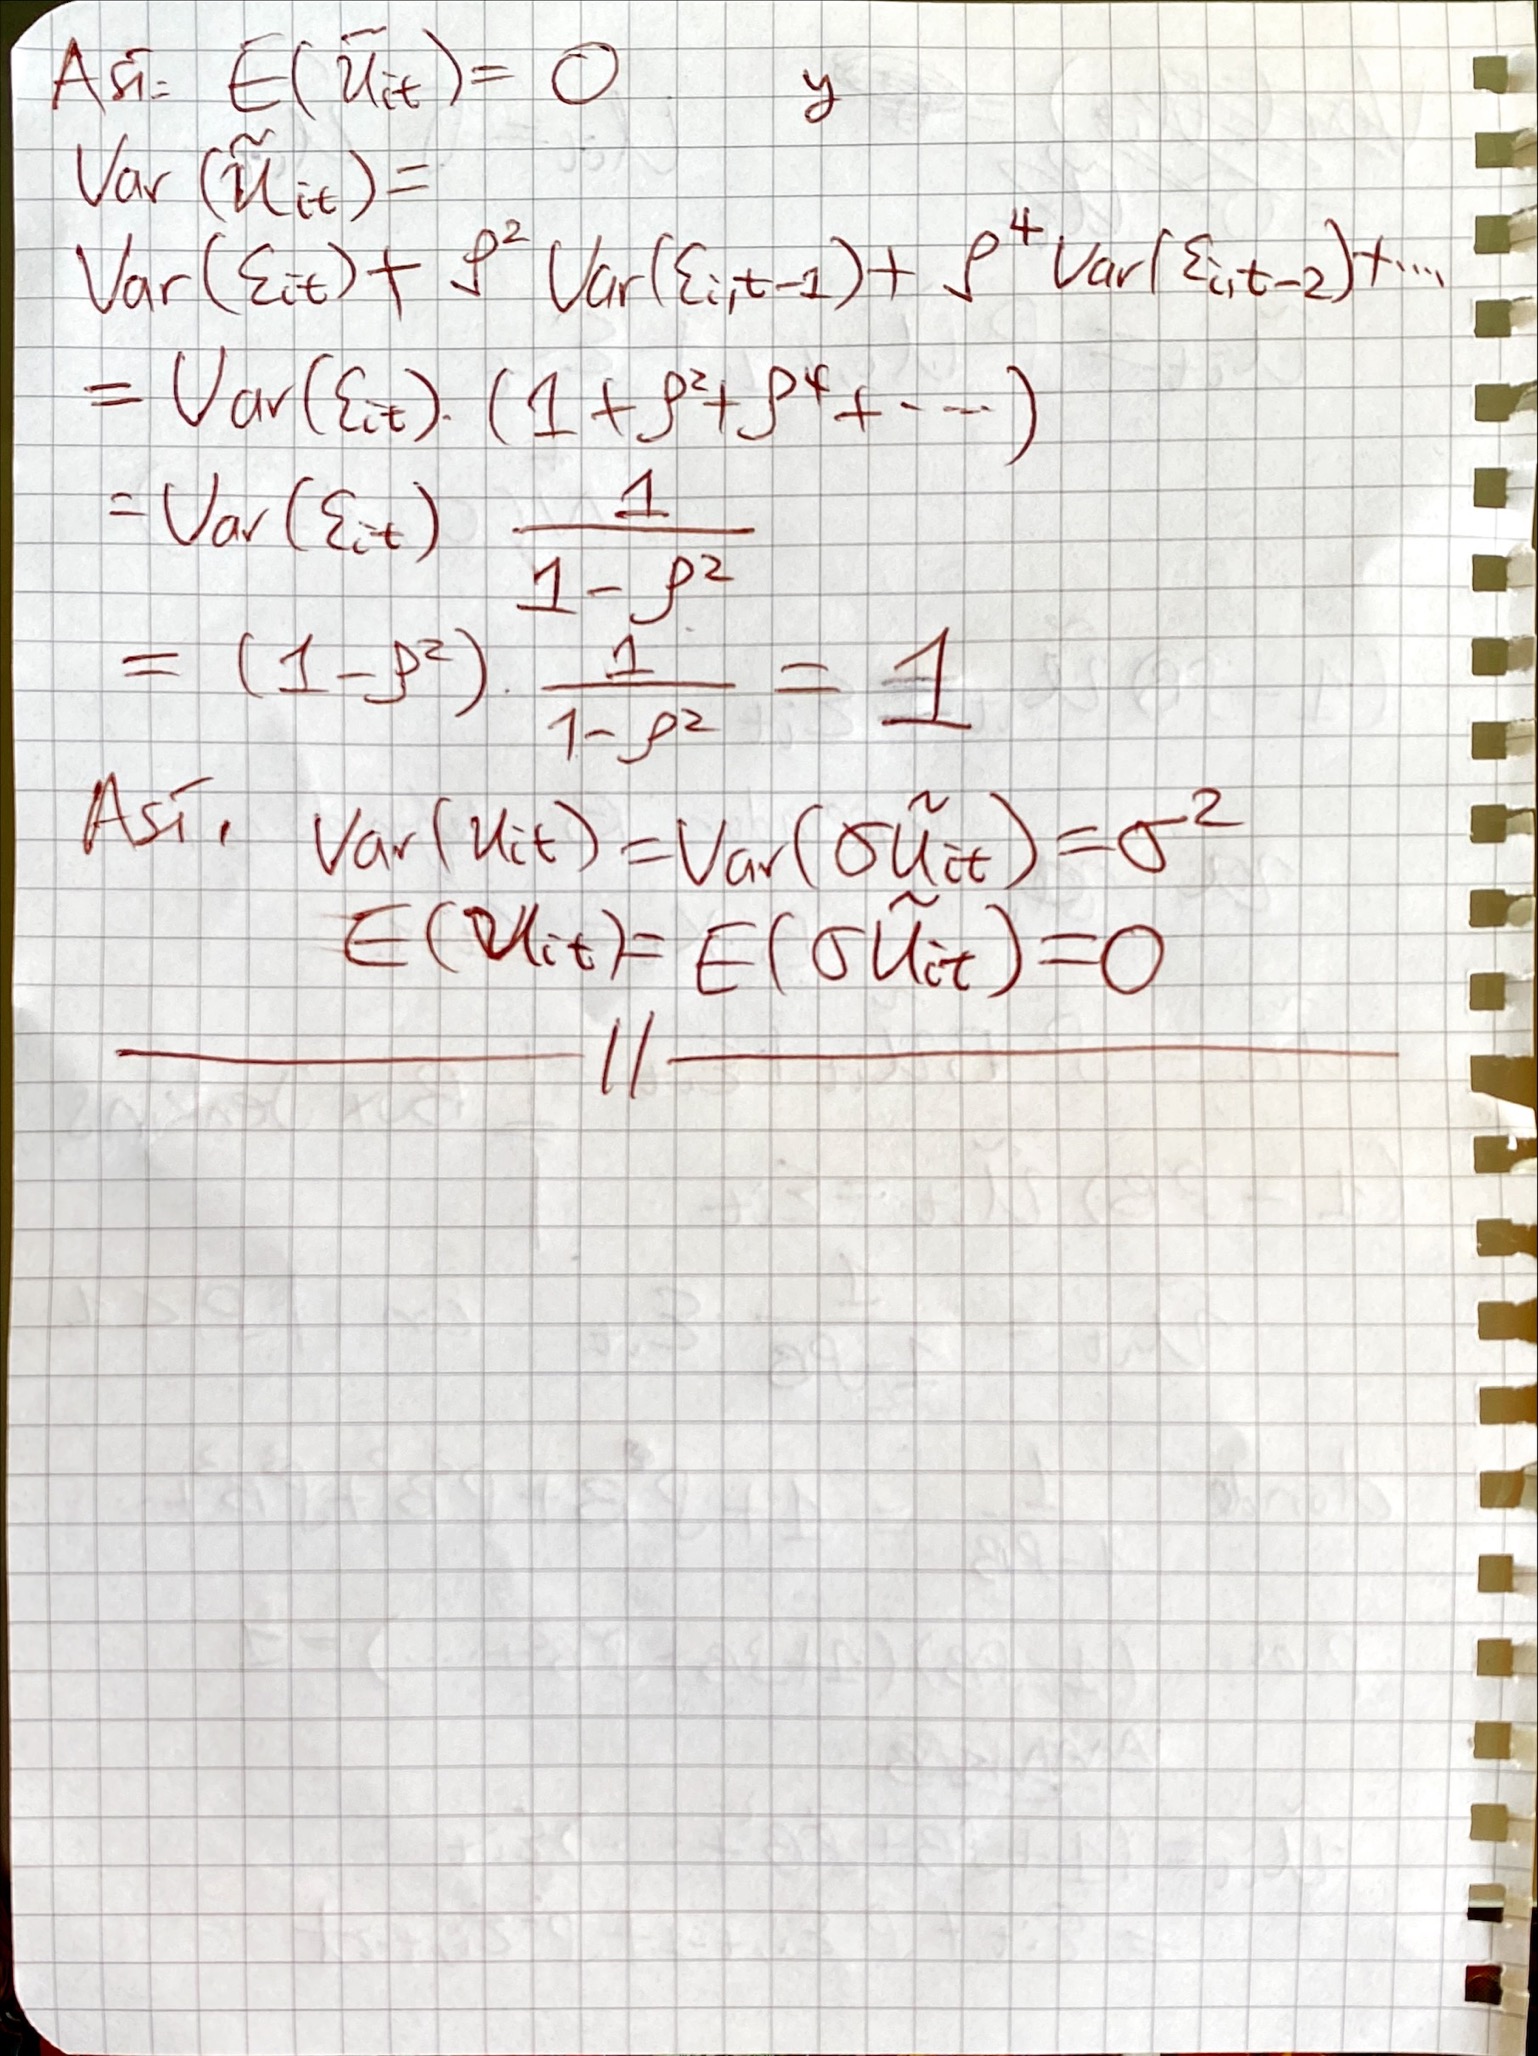 Así: E(ũit) = 0 y
Var(ũit) =
Var(εit) + ρ² Var(εi,t-1) + ρ⁴ Var(εi,t-2) + ....
= Var(εit) · (1 + ρ² + ρ⁴ + ····)
= Var(εit) 1/(1 - ρ²)
= (1 - ρ²) · 1/(1 - ρ²) = 1
Así, Var(uit) = Var(σũit) = σ²
E(uit) = E(σũit) = 0
//